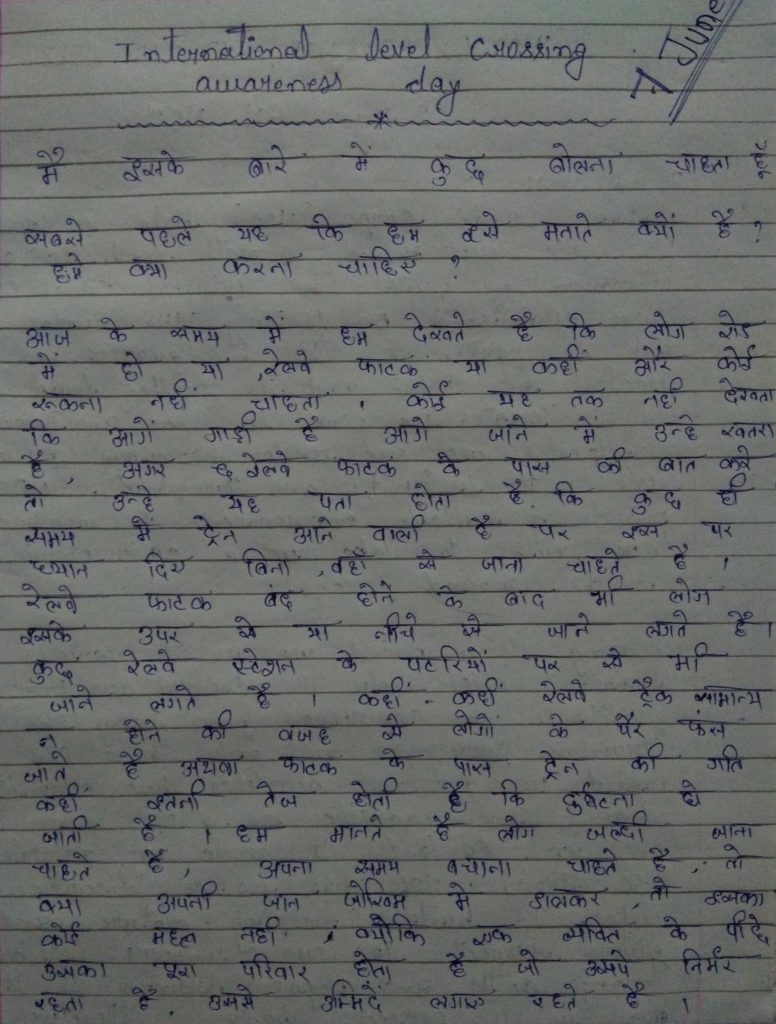 International level crossing
awareness day
11 June
मैं इसके बारे में कुछ बोलना चाहता हूँ
सबसे पहले यह कि हम इसे मनाते क्यों है ?
हमे क्या करना चाहिए ?
आज के समय में हम देखते है कि लोग रोड
में हो या , रेलवे फाटक या कहीं और कोई
रुकना नहीं चाहता , कोई यह तक नही देखता
कि आगें गाड़ी है आगे जाने में उन्हे खतरा
है , अगर रेलवे फाटक के पास की बात करे
तो उन्हे यह पता होता है कि कुछ ही
समय में ट्रेन आने वाली है पर इस पर
ध्यान दिए बिना , वहाँ से जाना चाहते है ,
रेलवे फाटक बंद होने के बाद भी लोग
इसके उपर से या नीचे से जाने लगते है ।
कुछ रेलवे स्टेशन के पटरियों पर से भी
जाने लगते है । कहीं - कहीं रेलवे ट्रैक सामान्य
न होने की वजह से लोगों के पैर फंस
जाते है अथवा फाटक के पास ट्रेन की गति
कहीं इतनी तेज होती है कि दुर्घटना हो
जाती है । हम मानते है लोग जल्दी जाना
चाहते है , अपना समय बचाना चाहते है , तो
क्या अपनी जान जोखिम में डालकर , तो इसका
कोई महत्व नही , क्योकि एक व्यक्ति के पीछे
उसका पूरा परिवार होता है जो उसपे निर्भर
रहता है उससे उम्मिदे लगाए रहते है ।